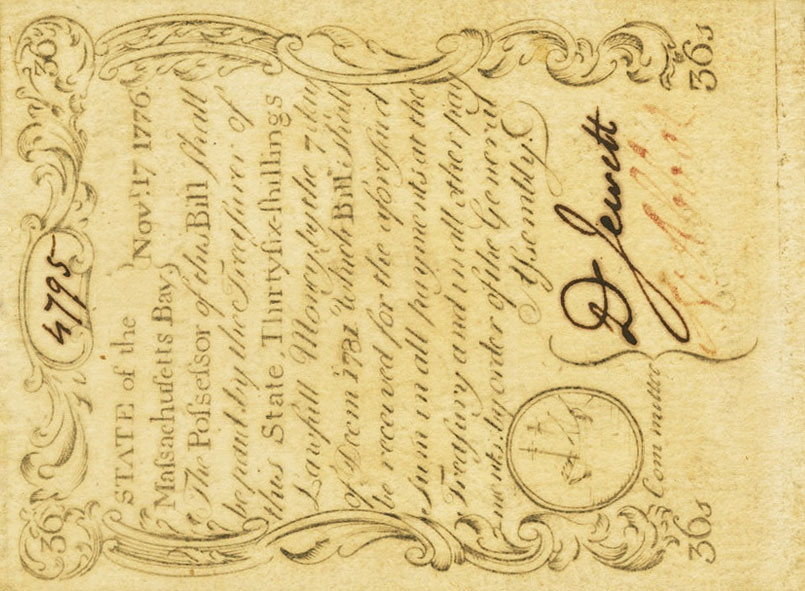 36 4795 36
STATE of the
Maſsachuſetts Bay } Nov.r 17 1776
The Poſseſsor of this Bill ſhall
be paid by the Treaſurer of
this State Thirty ſix ſhillings
Lawfull Money by the 7 day
of Decm 1782 Which Bill ſhall
be received for the aforeſaid
Sum in all payments at the
Treaſury and in all other pay
ments, by order of the General
Aſsembly.
D Jewett
Committee
36s 36s